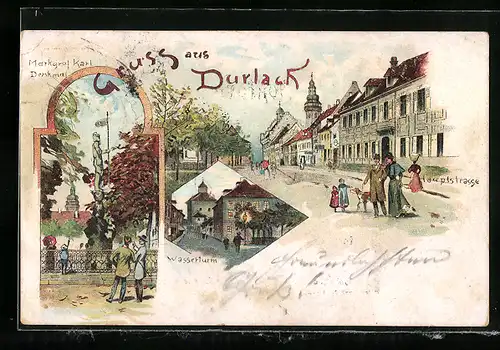 Markgraf Karl
Denkmal
Gruss aus
Durlach
Hauptstrasse
Wasserturm